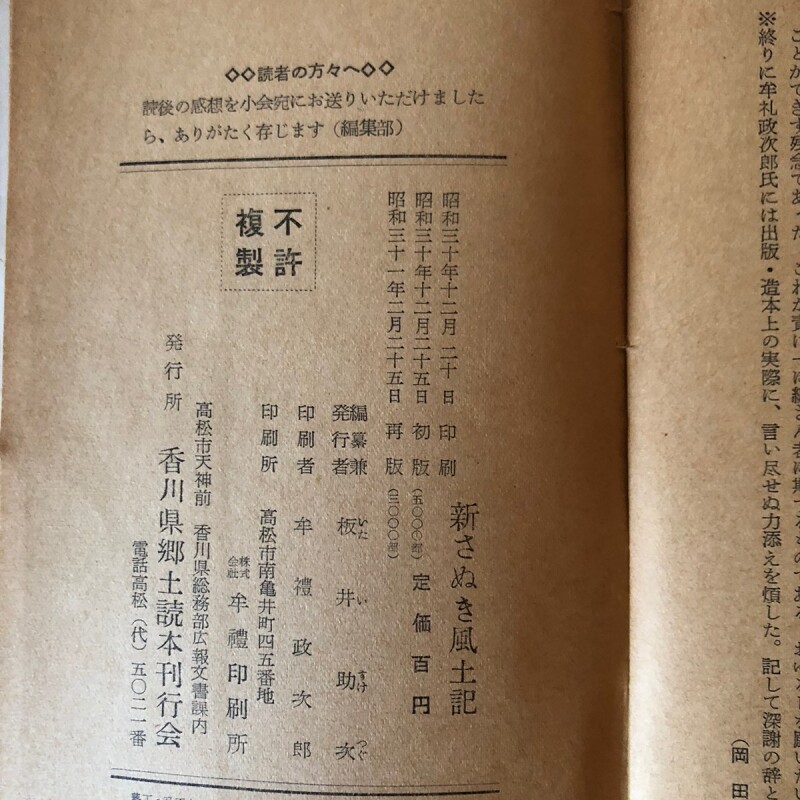 ことができず残念であった。これが責
※終りに牟礼政次郎氏には出版・造本上の実際に、言い尽せぬ力添えを煩した。記して深謝の辞と
（岡田
◇◇読者の方々へ◇◇
読後の感想を小会宛にお送りいただけました
ら、ありがたく存じます（編集部）
新さぬき風土記
昭和三十年十二月二十日 印刷
昭和三十年十二月二十五日 初版（五〇〇〇部） 定価百円
昭和三十一年二月二十五日 再版（三〇〇〇部）
不許
複製
編纂兼
発行者 板井助次 いたいすけつぐ
印刷者 牟禮政次郎
高松市南亀井町四五番地
印刷所 株式会社 牟禮印刷所
高松市天神前 香川県総務部広報文書課内
発行所 香川県郷土読本刊行会
電話高松（代）五〇二一番